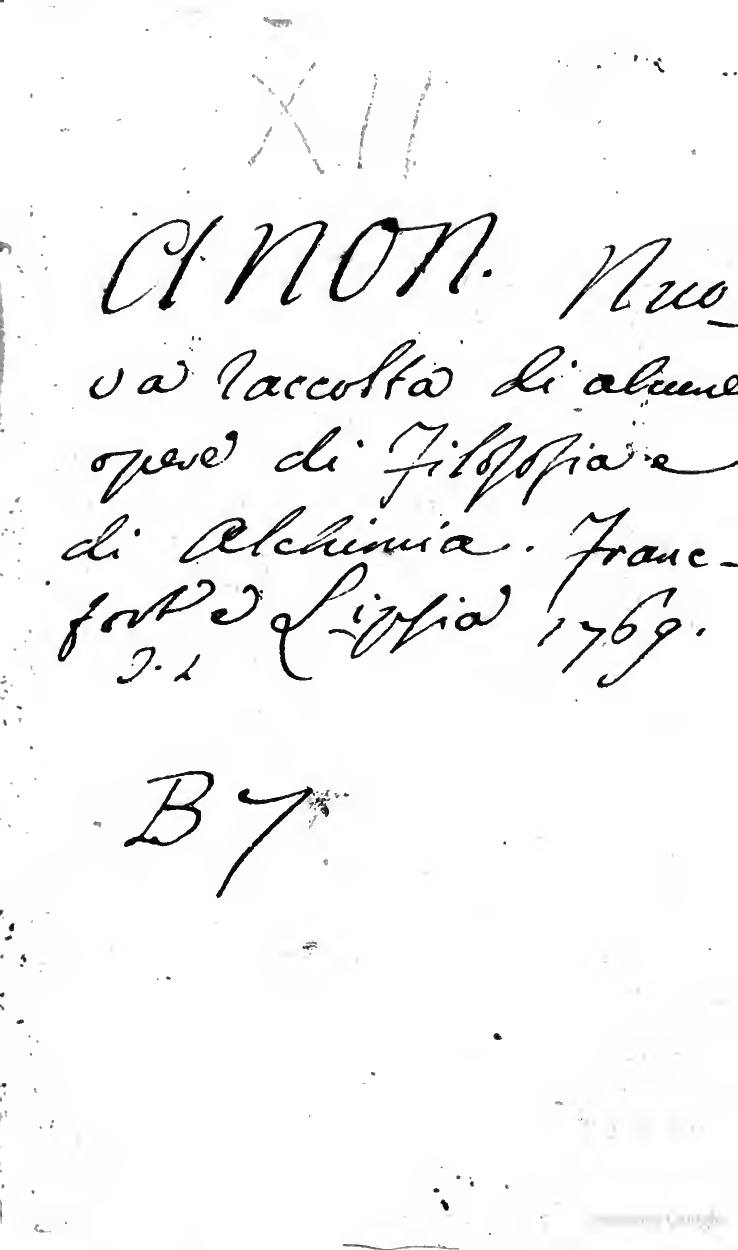 XII
ANON. Nuo-
va raccolta di alcune
opere di Filosofia e
di Alchimia. Franc-
fort e Lipsia 1769.
B 7